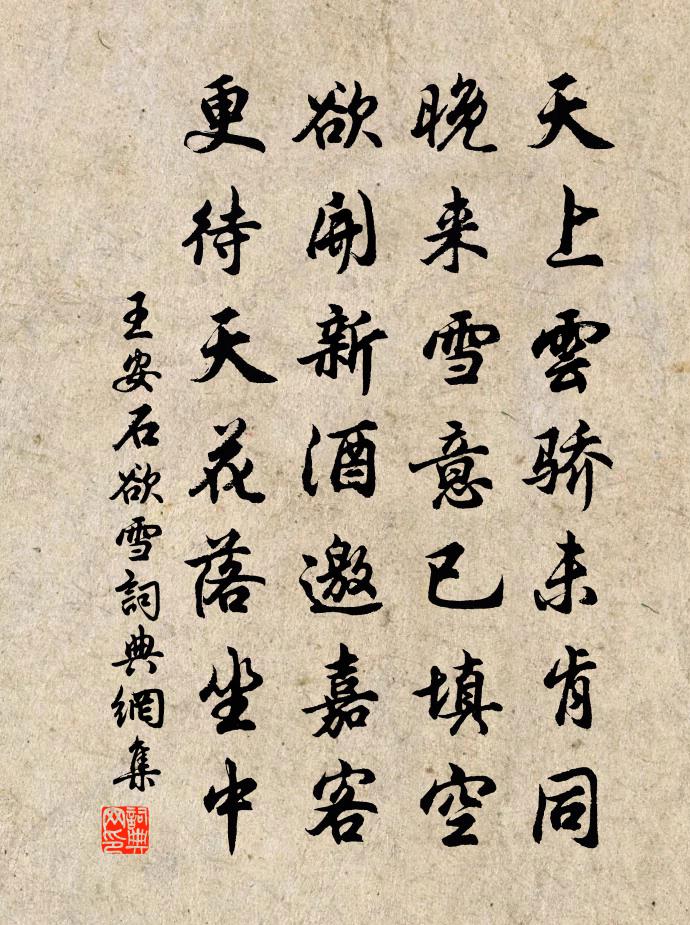 天上雲骄未肯同
晚来雪意已填空
欲開新酒邀嘉客
更待天花落坐中
王安石欲雪詞典網集
詞典网印